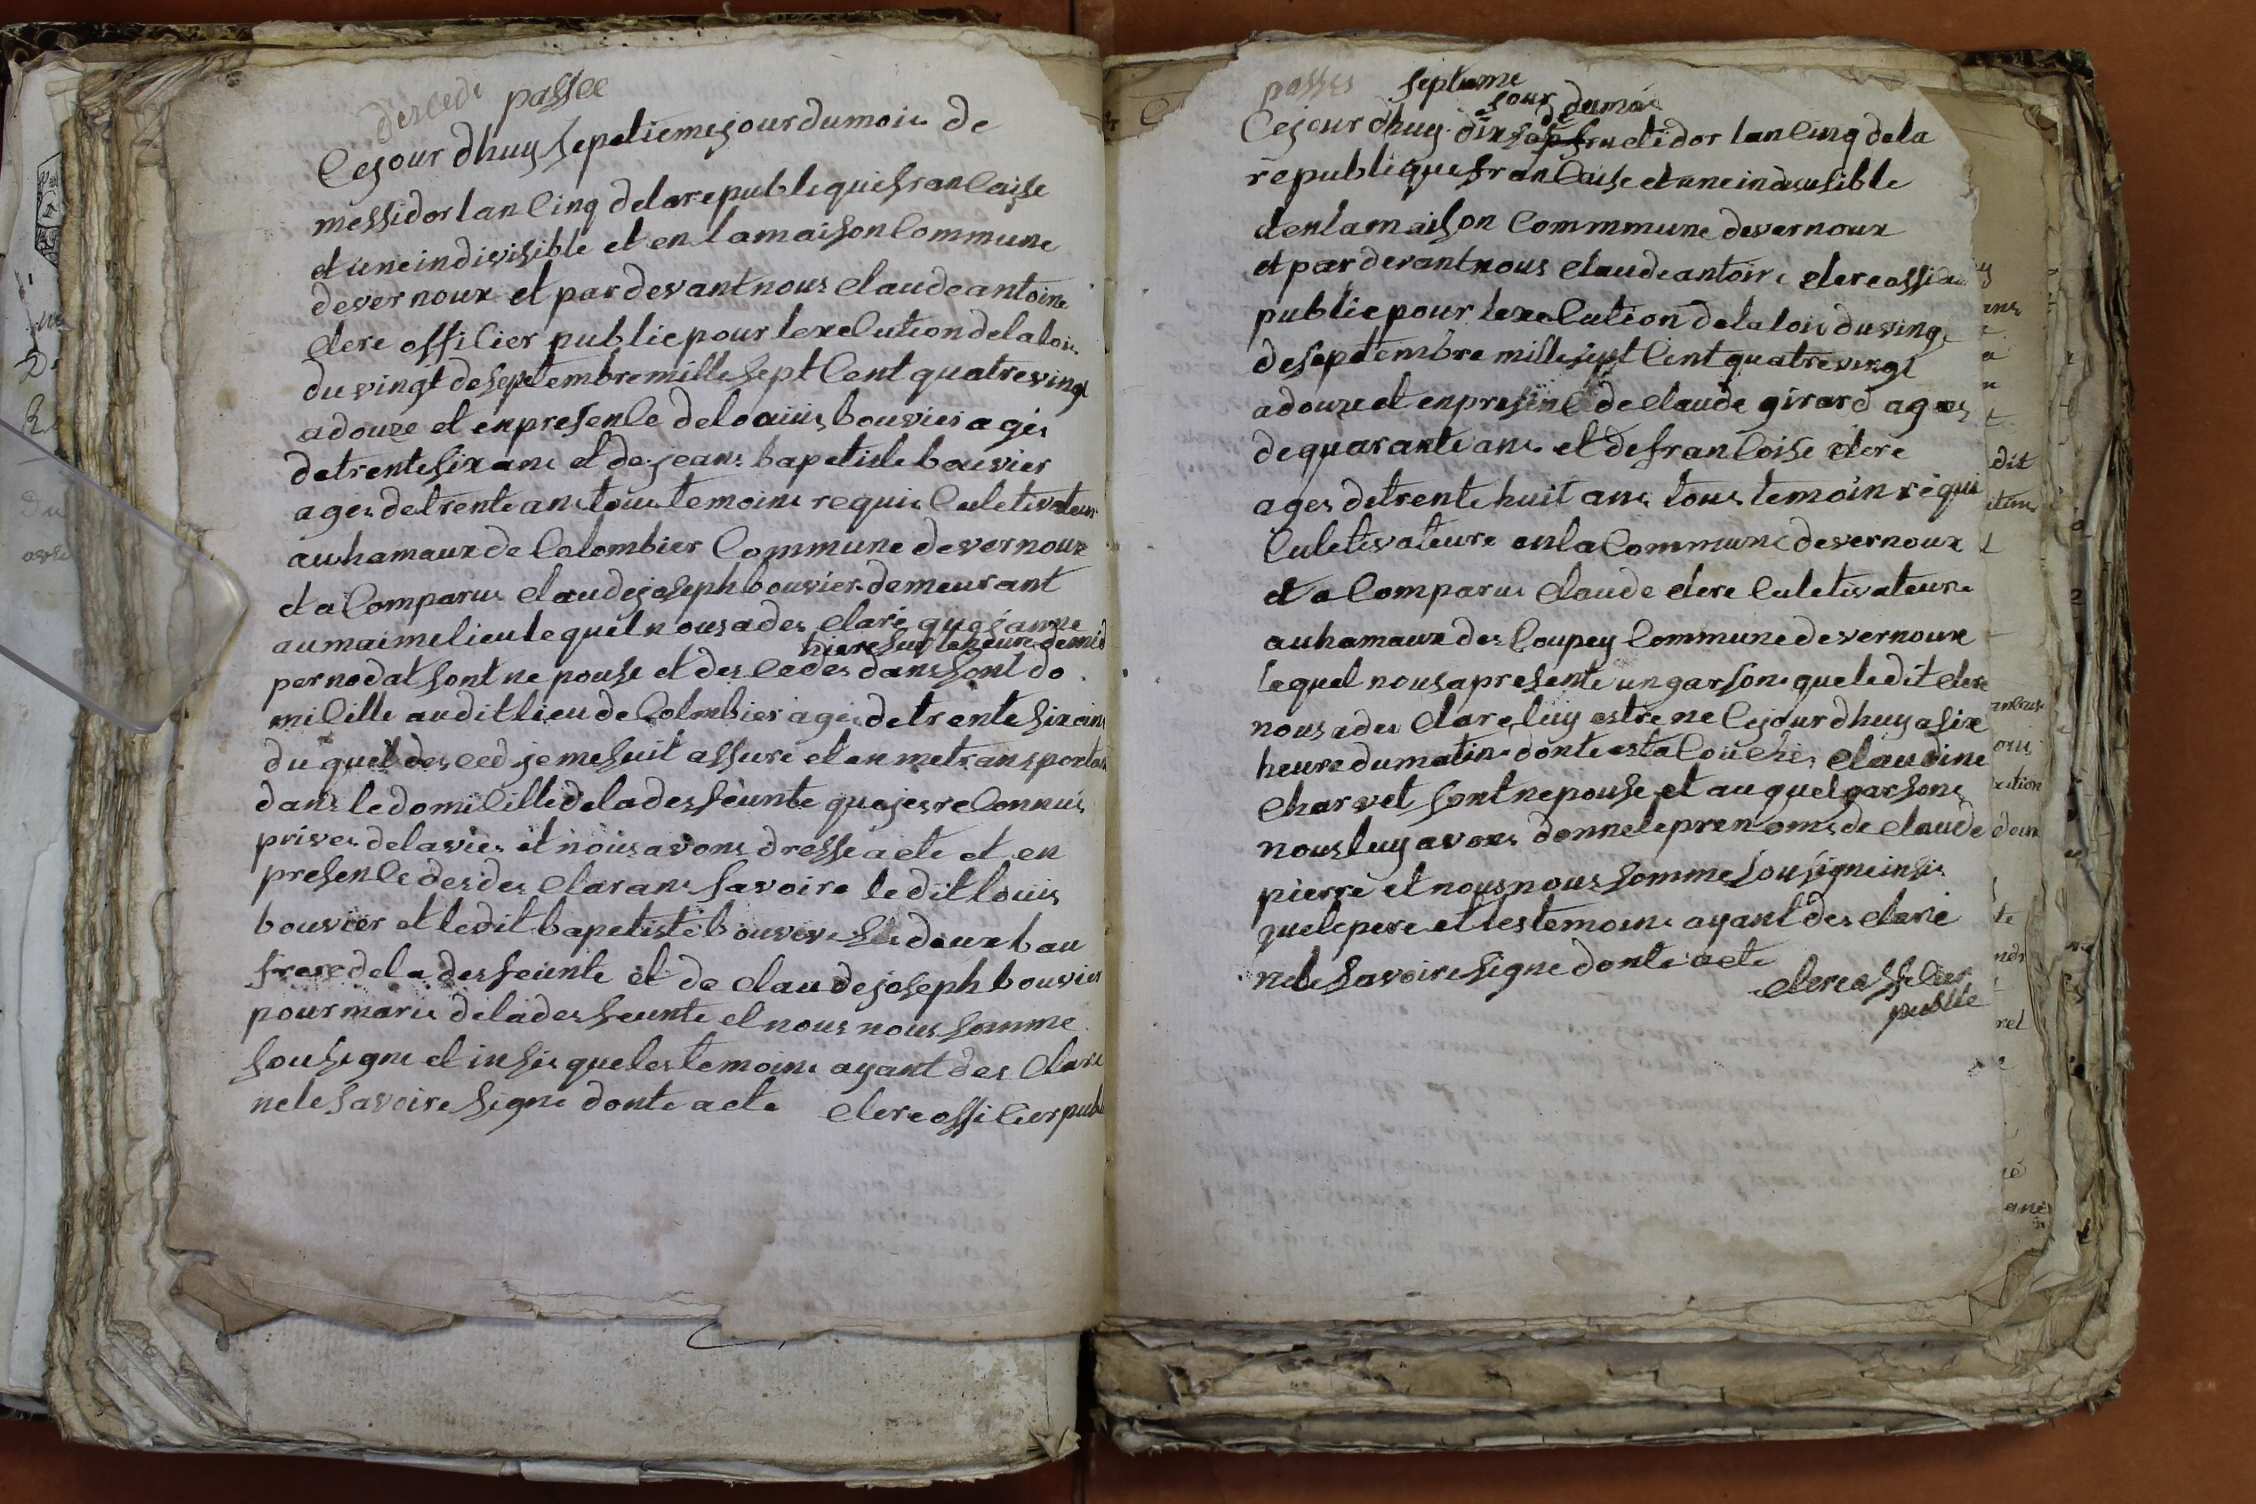 descede passee
Cejour dhuy sepetieme jour du mois de
messidor lan Cinq de la republique franCaise
et une indivisible et en la maison Commune
de vernoux et par devant nous Claude antoine
Clere offiCier public pour lexeCution de la loi
du vingt de septembre mille sept Cent quatre vingt
a douze et en presenCe de louiis bouvier ages
de trente six ans et de jeans bapetiste bouvier
ages de trente ans tous temoins requis Culetivateur
au hamaux de Colombier Commune de vernoux
et a Comparus Claude joseph bouvier demeurant
au maime lieu lequel nous a des Clare que janne
hiere sur le heure de mid
pernodat sont nepouse et des Cedes dans sont do
miCille au dit lieu de Colmbier ages de trente six ans
du quel des Ced je me suit assure et an me transportan
dans le domiCille de la desfeunte que jes reConnus
prives de la vies et nous avons dresse acte et en
presenCe des des Clarans savoire le dit louiis
bouvier et le dit bapetiste bouvier les deux bau
frere de la desfeunte et de Claude joseph bouvier
pour maris de la desfeunte et nous nous somme
sousigne et insis que les temoins ayant des Clare
ne le savoire signe donte acte Clere offiCier publ
passes septieme
jour du mois
Cejour dhuy dix sep de fructidor lan Cinq de la
republique franCaise et une indivisible
et en la maison Commmune de vernoux
et par devant nous Claude antoine Clere offiCie
public pour lexeCution de la loi du ving
de septembre mille sept Cent quatre vingt
a douze et en presenCe de Claude girard ages
de quarante ans et de franCoise Clere
ages de trente huit ans tous temoin requi
Culetivateure en la Commune de vernoux
et a Comparus Claude Clere Culetivateure
au hamaux des Coupey Commune de vernoux
lequel nous a presente un garsons que le dit Clere
nous a des Clare luy estre ne Cejour dhuy a six
heure du matin donte est aCouChes Claudine
Charvet sont nepouse et au quel garsons
nous luy avons donne le prenoms de Claude
pierre et nous nous somme sousigne insis
que le pere et les temoins ayant des Clarie
ne le savoire signe donte acte
Clere offiCier
public